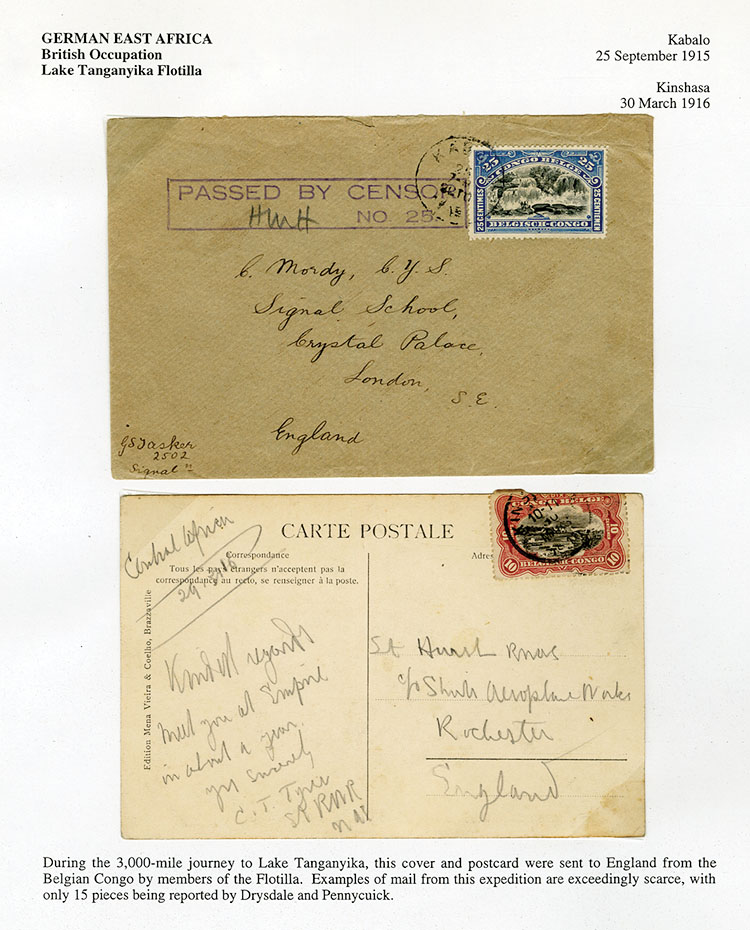 GERMAN EAST AFRICA
British Occupation
Lake Tanganyika Flotilla
Kabalo
25 September 1915
Kinshasa
30 March 1916
PASSED BY CENSO
HWH
NO. 25
KAB
25
CONGO BELGE
25
25 CENTIMES
25 CENTIEMEN
BELGISCH-CONGO
C. Mordy, C.Y.S.
Signal School,
Crystal Palace,
London,
S.E.
England
GSTasker
2502
Signal
Central Africa
29.3.16
CARTE POSTALE
Correspondance
Tous les pays étrangers n'acceptent pas la
correspondance au recto, se renseigner à la poste.
Adres
Edition Mena Vieira & Coelho, Brazzaville
KINS
10-11
CONGO BELGE
10
10
10
BELGISCH-CONGO
Kindest regards
Meet you at Empire
in about a year.
yrs Sincerely
C. T. Tyrer
RNAS
c/o Shorts Aeroplane Works
Rochester
England
During the 3,000-mile journey to Lake Tanganyika, this cover and postcard were sent to England from the
Belgian Congo by members of the Flotilla. Examples of mail from this expedition are exceedingly scarce, with
only 15 pieces being reported by Drysdale and Pennycuick.